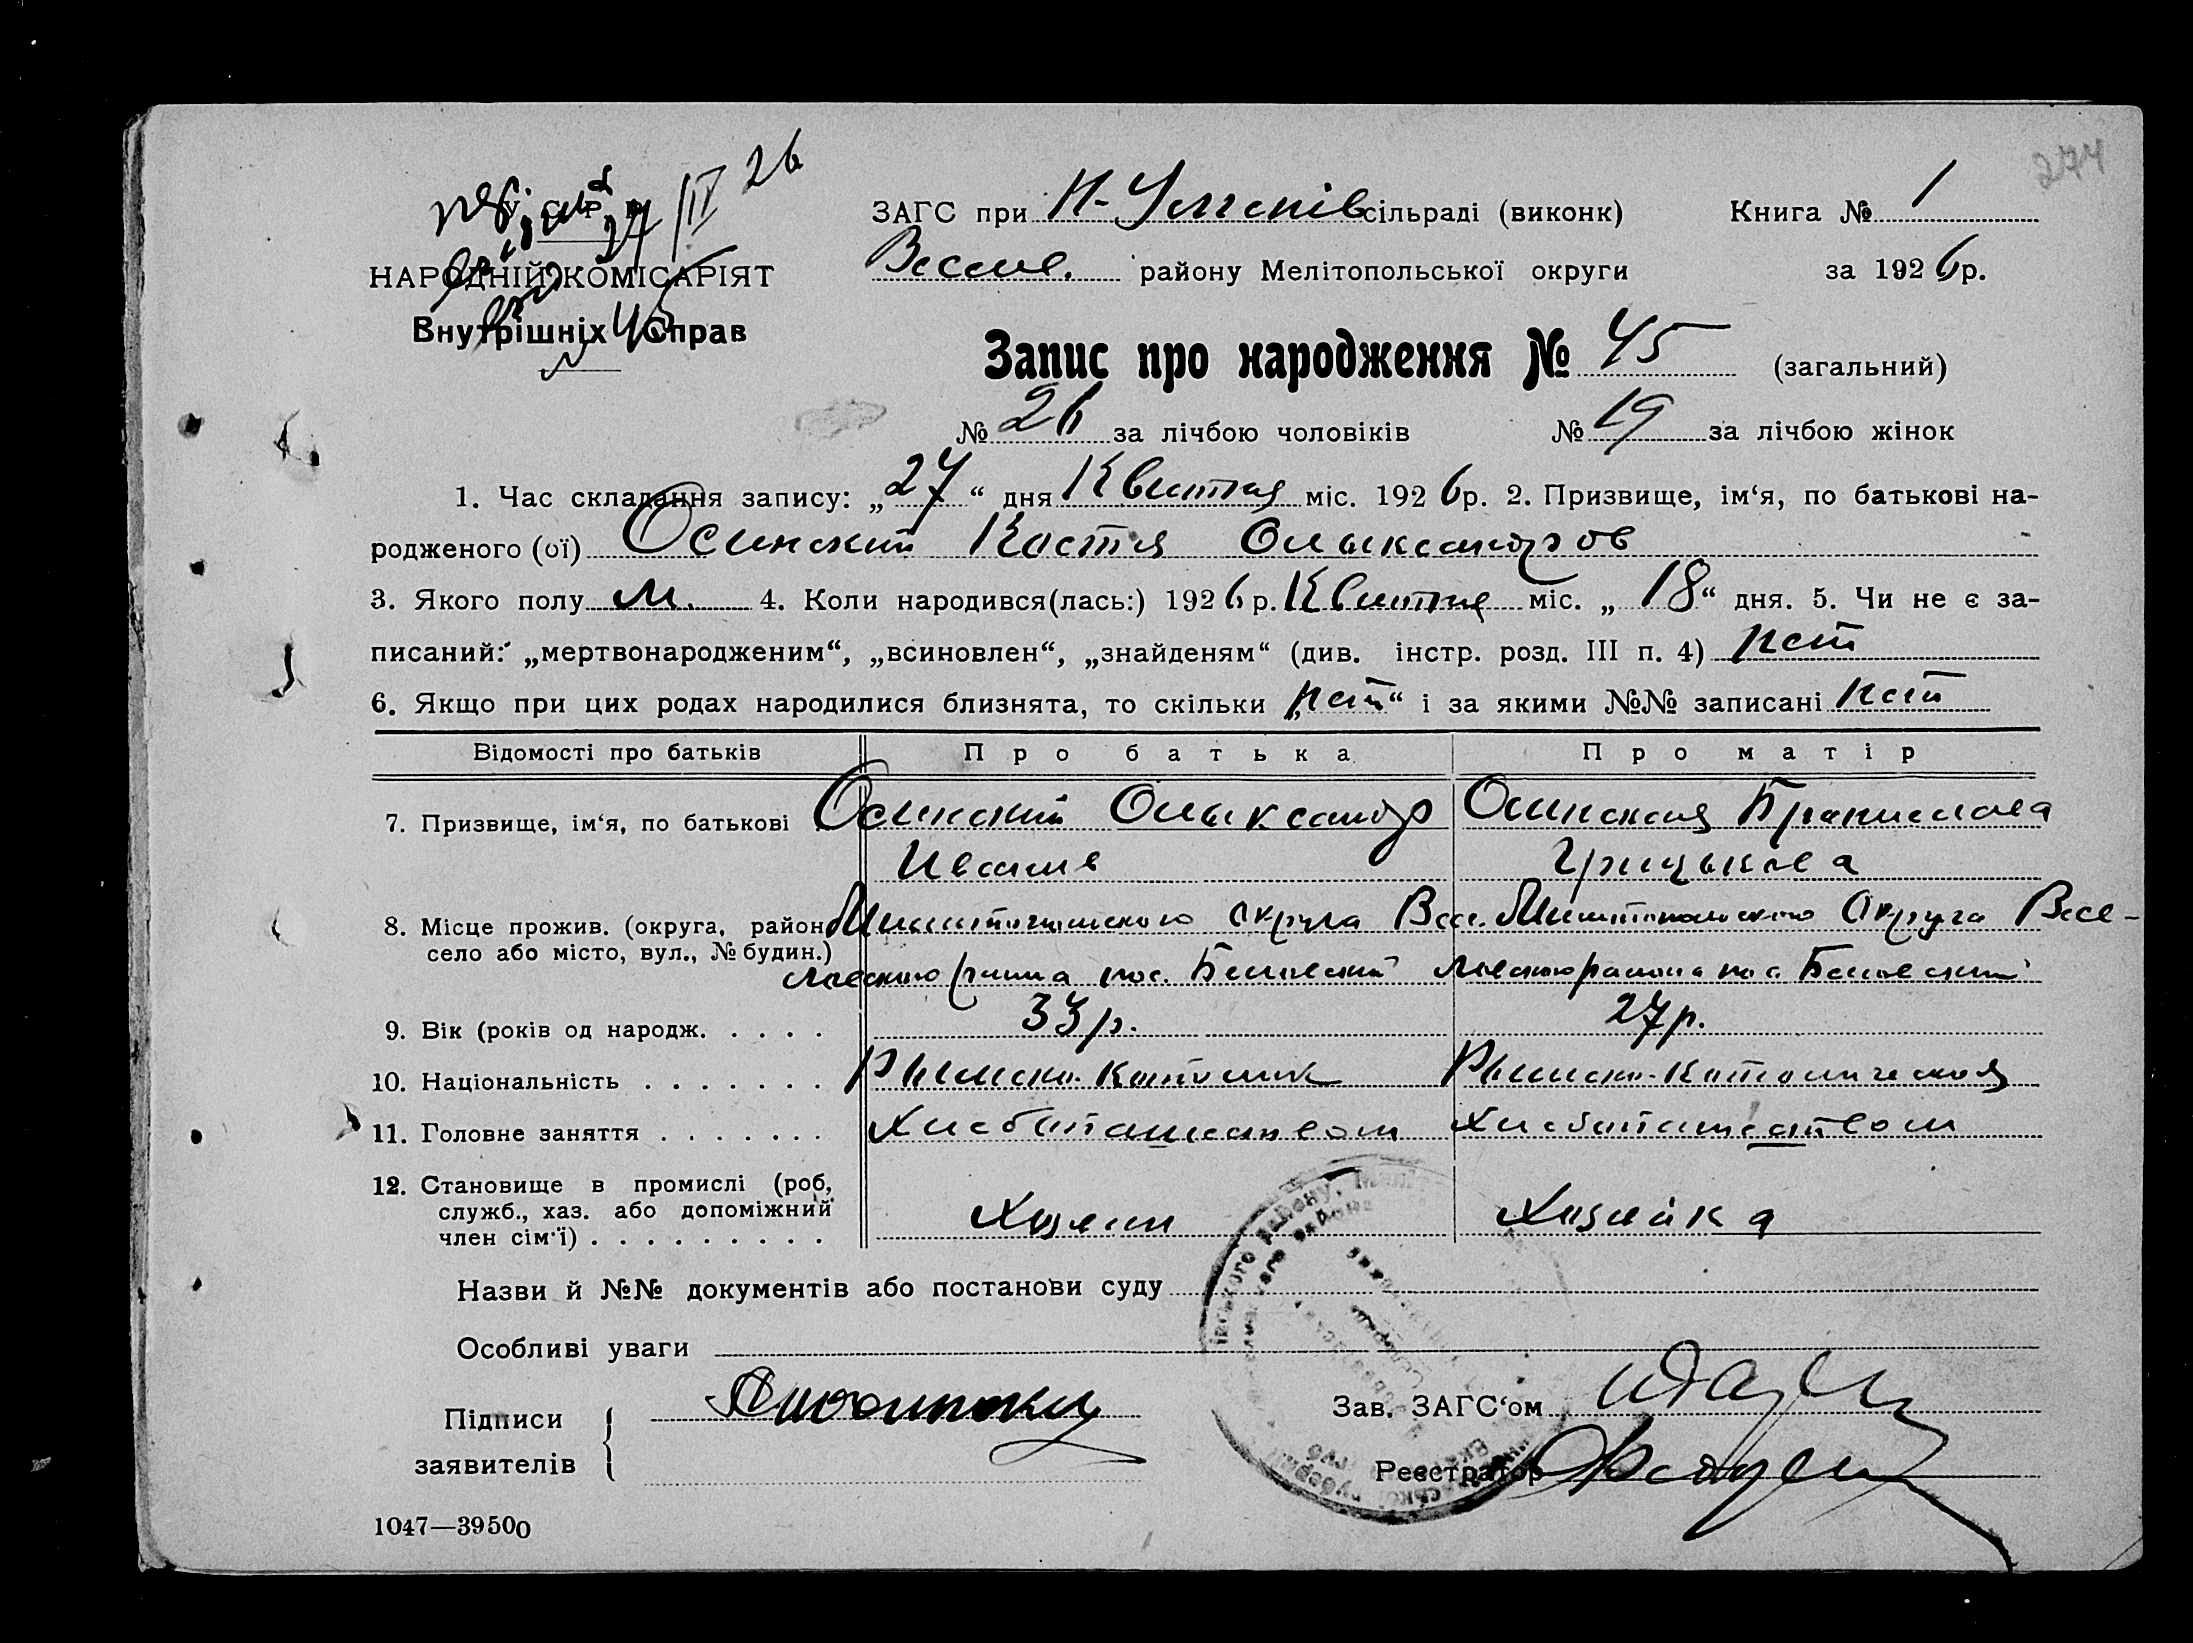 274
27/IV 26
У. С. Р. Р.
НАРОДНІЙ КОМІСАРІЯТ
Внутрішніх Справ
№ 45
ЗАГС при сільраді (виконк) Книга № 1
Весел. району Мелітопольської округи за 1926 р.
Запис про народження № 45 (загальний)
№ 26 за лічбою чоловіків № 19 за лічбою жінок
1. Час складання запису: „27“ дня Квитня міс. 1926 р. 2. Призвище, ім‘я, по батькові на-
родженого (ої) Осинский Костя Олыксандров
3. Якого полу м. 4. Коли народився(лась:) 1926 р. Квитня міс. „18“ дня. 5. Чи не є за-
писаний: „мертвонародженим“, „всиновлен“, „знайденям“ (див. інстр. розд. III п. 4) нет
6. Якщо при цих родах народилися близнята, то скільки „нет“ і за якими №№ записані нет
Відомості про батьків Про батька Про матір
7. Призвище, ім‘я, по батькові Осинский Олыксандр Осинская Бранислава
Иванив Грицькова
8. Місце прожив. (округа, район Округа Весе-
село або місто, вул., № будин.) пос. пос.
9. Вік (років од народж. . . . . 33 р. 27 р.
10. Національність . . . . . . . Рымско-Католик Рымско-Католическая
11. Головне заняття . . . . . . .
12. Становище в промислі (роб,
служб., хаз. або допоміжний Хозяин Хозяйка
член сім‘ї) . . . . . . . . .
Назви й №№ документів або постанови суду
Особливі уваги
Підписи Зав. ЗАГС‘ом
заявителів Реєстратор
1047—39500